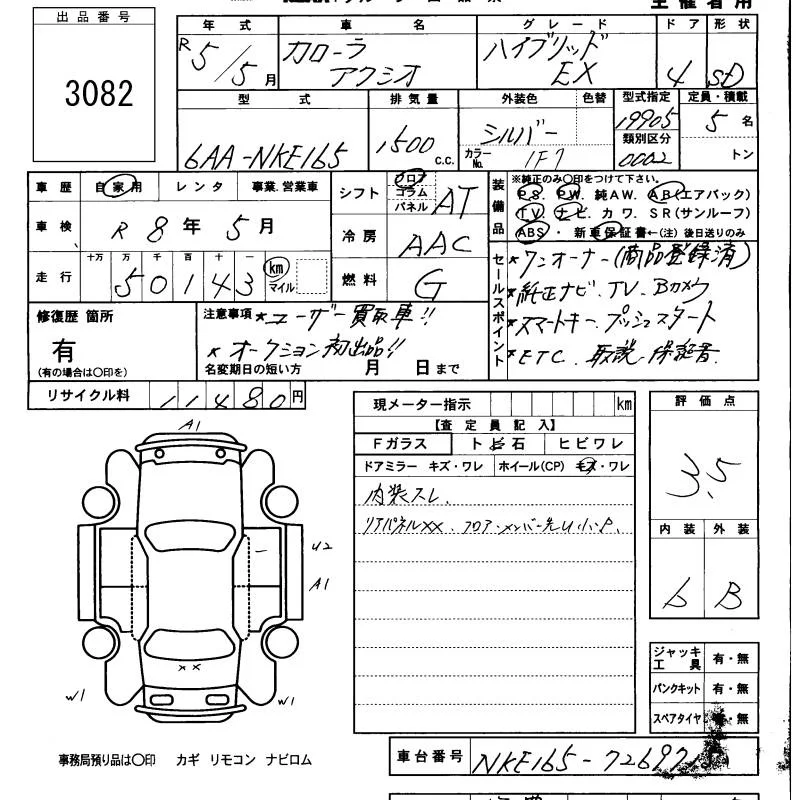 主催者用
出品番号
3082
年式 車名 グレード ドア 形状
R5/5月 カローラ ハイブリッド 4 SD
アクシオ EX
型式 排気量 外装色 色替 型式指定 定員・積載
6AA-NKE165 1,500 C.C. シルバー 19905 5名
カラーNo. 1F7 類別区分 0002 トン
車歴 自家用 レンタ 事業.営業車
シフト フロア コラム パネル AT
車検 R8年5月
冷房 AAC
走行 十万 万 千 百 十 一
50143 km マイル
燃料 G
装備品 ※純正のみ〇印をつけて下さい。
P.S. P.W. 純AW. A.B(エアバック)
T.V. ナビ. カワ. SR(サンルーフ)
ABS・新車保証書←(注)後日送りのみ
セールスポイント
★ワンオーナー(商品登録済)
★純正ナビ.TV.Bカメラ
★スマートキー.プッシュスタート
★ETC.取説.保証書
修復歴 箇所
有
(有の場合は〇印を)
注意事項 ★ユーザー買取車!!
★オークション初出品!!
名変期日の短い方 月 日まで
リサイクル料 11480円
現メーター指示 km
【査定員記入】
Fガラス トビ石 ヒビワレ
ドアミラー キズ・ワレ ホイール(CP) キズ・ワレ
内装スレ.
リアパネルXX.フロア.メンバー先U小P.
評価点
3.5
内装 外装
b B
A1
U2
A1
XX
W1
W1
ジャッキ工具 有・無
パンクキット 有・無
スペアタイヤ 有・無
事務局預り品は〇印 カギ リモコン ナビロム
車台番号 NKE165-72697